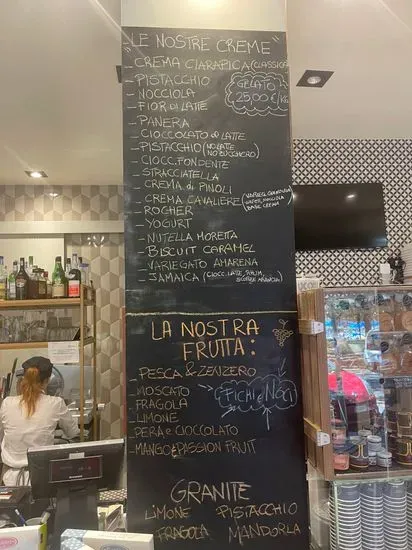 "LE NOSTRE CREME"
- CREMA CIARAPICA (CLASSICA)
- PISTACCHIO
- NOCCIOLA
- FIOR di LATTE
GELATO
25,00 €/KG
- PANERA
- CIOCCOLATO al LATTE
- PISTACCHIO (NO LATTE
NO ZUCCHERO)
- CIOCC. FONDENTE
- STRACCIATELLA
- CREMA di PINOLI
- CREMA CAVALIERE
BASE CREMA)
- ROCHER
- YOGURT
- NUTELLA MORETTA
- BISCUIT CARAMEL
- VARIEGATO AMARENA
- JAMAICA (CIOCC. LATTE, RHUM,
SCORZE ARANCIA)
LA NOSTRA
FRUTTA:
- PESCA & ZENZERO
- MOSCATO
- FRAGOLA
- LIMONE
FICHI e NOCI
- PERA e CIOCCOLATO
- MANGO e PASSION FRUIT
GRANITE
LIMONE PISTACCHIO
FRAGOLA MANDORLA